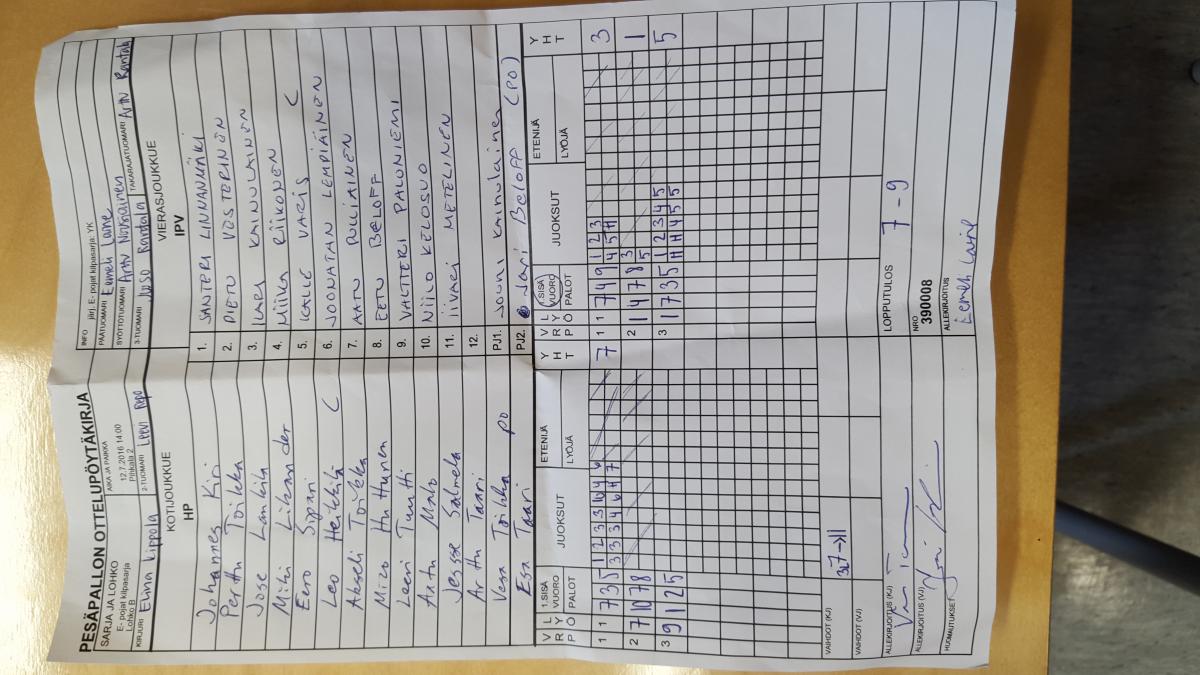 PESÄPALLON OTTELUPÖYTÄKIRJA
SARJA JA LOHKO
E- pojat kilpasarja
Lohko B
AIKA JA PAIKKA
12.7.2016 14.00
Pihkala 2
INFO järj. E- pojat kilpasarja: YK
PÄÄTUOMARI Eemeli Laine
SYÖTTÖTUOMARI Arttu Nousiainen
KIRJURI Elina Lippola
2-TUOMARI Leevi Repo
3-TUOMARI Juso Rantala
TAKARAJATUOMARI Arttu Rantala
KOTIJOUKKUE
HP
VIERASJOUKKUE
IPV
Johannes Kiri 1. SANTERI LINNANMÄKI
Perttu Töikkä 2. DIETU VÖSTERINEN
Jose Lankila 3. ILARI KAINULAINEN
Miki Likander 4. Miika RIIKONEN
Eero Sipari 5. KALLE VARIS C
Leo Heikkilä C 6. JOONATAN LEMPIÄINEN
Akseli Töikkä 7. AATU PULLIAINEN
Mico Huttunen 8. EETU BELOFF
Leevi Tuutti 9. VALTTERI PALONIEMI
Antu Malo 10. NIILO KELOSUO
Jesse Salmela 11. IIVARI METELINEN
Arttu Taari 12.
Vesa Töikkä PO PJ1. Jouni Kainulainen
Esa Taari PJ2. Jari Beloff (PO)
V P L R Y Ö 1.SISÄ VUORO PALOT JUOKSUT ETENIJÄ LYÖJÄ Y H T
V P L R Y Ö 1.SISÄ VUORO PALOT JUOKSUT ETENIJÄ LYÖJÄ Y H T
1 1 7 3 5 1 2 3 3 6 4 6 7
3 3 3 4 6 7 7
1 1 7 4 9 1 2 3 3
4 5 11
2 7 10 7 8
2 1 4 7 8 3 1
5
3 9 1 2 5
3 1 7 3 5 1 2 3 4 5 5
11 11 4 5 5
VAIHDOT (KJ) 3v7→11
VAIHDOT (VJ)
ALLEKIRJOITUS (KJ)
LOPPUTULOS 7 - 9
ALLEKIRJOITUS (VJ)
NRO
390008
HUOMAUTUKSET
ALLEKIRJOITUS
Eemeli Laine